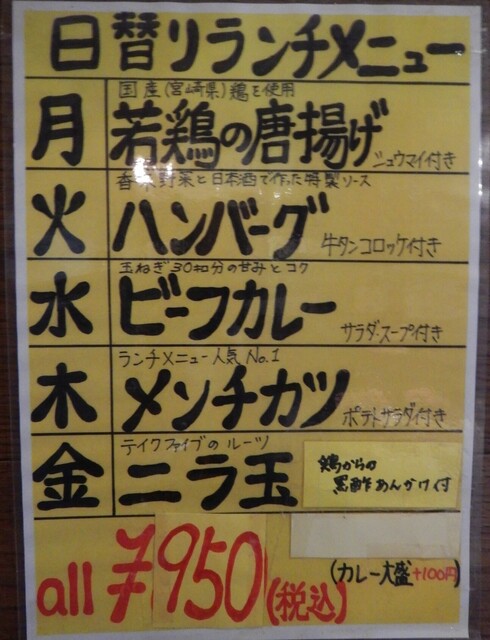 日替りランチメニュー
月
国産(宮崎県)鶏を使用
若鶏の唐揚げ
シュウマイ付き
火
香味野菜と日本酒で作った特製ソース
ハンバーグ
牛タンコロッケ付き
水
玉ねぎ30知分の甘みとコク
ビーフカレー
サラダ・スープ付き
木
ランチメニュー人気No.1
メンチカツ
ポテトサラダ付き
金
テイクファイブのルーツ
ニラ玉
鶏からの
黒酢あんかけ付
all ¥950(税込)
(カレー大盛+100円)